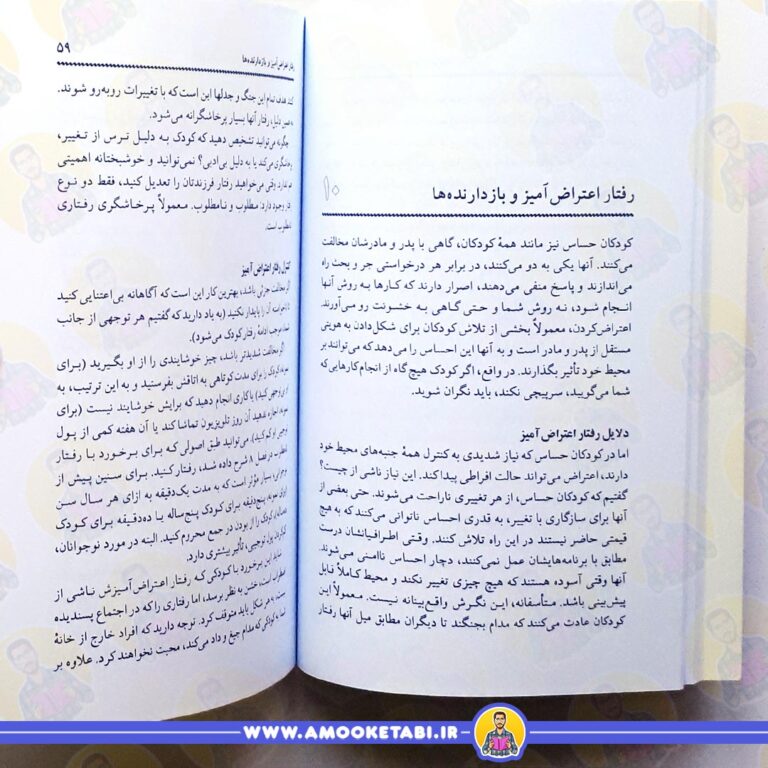 ۱۰
رفتار اعتراض آمیز و بازدارنده‌ها
کودکان حساس نیز مانند همهٔ کودکان، گاهی با پدر و مادرشان مخالفت
می‌کنند. آنها یکی به دو می‌کنند، در برابر هر درخواستی جر و بحث راه
می‌اندازند و پاسخ منفی می‌دهند، اصرار دارند که کارها به روش آنها
انجام شود، نه روش شما و حتی گاهی به خشونت رو می‌آورند.
اعتراض‌کردن، معمولاً بخشی از تلاش کودکان برای شکل‌دادن به هویتی
مستقل از پدر و مادر است و به آنها این احساس را می‌دهد که می‌توانند بر
محیط خود تأثیر بگذارند. در واقع، اگر کودک هیچ‌گاه از انجام‌کارهایی که
شما می‌گویید، سرپیچی نکند، باید نگران شوید.
دلایل رفتار اعتراض آمیز
اما در کودکان حساس که نیاز شدیدی به کنترل همهٔ جنبه‌های محیط خود
دارند، اعتراض می‌تواند حالت افراطی پیدا کند. این نیاز ناشی از چیست؟
گفتیم که کودکان حساس، از هر تغییری ناراحت می‌شوند. حتی بعضی از
آنها برای سازگاری با تغییر، به قدری احساس ناتوانی می‌کنند که به هیچ
قیمتی حاضر نیستند در این راه تلاش کنند. وقتی اطرافیانشان درست
مطابق با برنامه‌هایشان عمل نمی‌کنند، دچار احساس ناامنی می‌شوند.
آنها وقتی آسوده هستند که هیچ چیزی تغییر نکند و محیط کاملاً قابل
پیش‌بینی باشد. متأسفانه، این نگرش واقع‌بینانه نیست. معمولاً این
کودکان عادت می‌کنند که مدام بجنگند تا دیگران مطابق میل آنها رفتار
رفتار اعتراض آمیز و بازدارنده‌ها
۵۹
کنند. هدف تمام این جنگ و جدلها این است که با تغییرات روبه‌رو شوند.
به همین دلیل، رفتار آنها بسیار پرخاشگرانه می‌شود.
چگونه می‌توانید تشخیص دهید که کودک به دلیل ترس از تغییر،
پرخاشگری می‌کند یا به دلیل بی‌ادبی؟ نمی‌توانید و خوشبختانه اهمیتی
هم ندارد. وقتی می‌خواهید رفتار فرزندتان را تعدیل کنید، فقط دو نوع
رفتار وجود دارد: مطلوب و نامطلوب. معمولاً پرخاشگری رفتاری
نامطلوب است.
کنترل رفتار اعتراض آمیز
اگر مخالفت جزئی باشد، بهترین کار این است که آگاهانه بی‌اعتنایی کنید
تا ناخواسته آن را پایدار نکنید (به یاد دارید که گفتیم هر توجهی از جانب
شما، موجب ادامهٔ رفتار کودک می‌شود).
اگر مخالفت شدیدتر باشد، چیز خوشایندی را از او بگیرید (برای
نمونه، کودک را برای مدت کوتاهی به اتاقش بفرستید و به این ترتیب، به
او بی‌توجهی کنید) یا کاری انجام دهید که برایش خوشایند نیست (برای
نمونه، اجازه ندهید آن روز تلویزیون تماشا کند یا آن هفته کمی از پول
توجیبی او کم کنید). می‌توانید طبق اصولی که برای برخورد با رفتار
اضطراب در فصل ۸ شرح داده شد، رفتار کنید. برای سنین پیش از
نوجوانی، بسیار مؤثر است که به مدت یک‌دقیقه به ازای هر سال سن
(برای نمونه، پنج‌دقیقه برای کودک پنج‌ساله یا ده‌دقیقه برای کودک
ده‌ساله) کودک را از بودن در جمع محروم کنید. البته در مورد نوجوانان،
کم‌کردن پول توجیبی، تأثیر بیشتری دارد.
شاید این برخورد با کودکی که رفتار اعتراض آمیزش ناشی از
اضطراب است، خشن به نظر برسد، اما رفتاری را که در اجتماع پسندیده
نیست، به هر شکل باید متوقف کرد. توجه دارید که افراد خارج از خانهٔ
شما به کودکی که مدام جیغ و داد می‌کند، محبت نخواهند کرد. علاوه بر
WWW.AMOOKETABI.IR